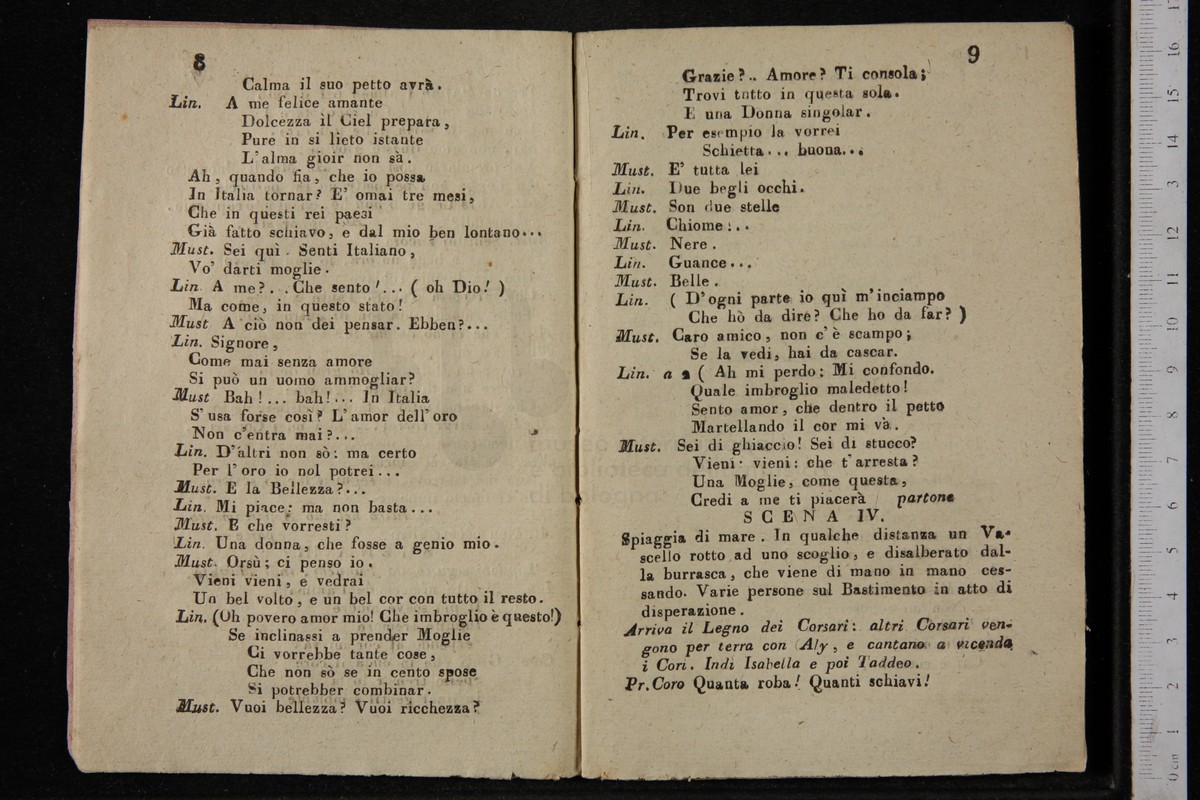 8
Calma il suo petto avrà.
Lin. A me felice amante
Dolcezza il Ciel prepara,
Pure in si lieto istante
L'alma gioir non sà.
Ah, quando fia, che io possa
In Italia tornar? E' omai tre mesi,
Che in questi rei paesi
Già fatto schiavo, e dal mio ben lontano...
Must. Sei quì. Senti Italiano,
Vo' darti moglie.
Lin. A me?...Che sento'... ( oh Dio! )
Ma come, in questo stato!
Must A ciò non dei pensar. Ebben?...
Lin. Signore,
Come mai senza amore
Si può un uomo ammogliar?
Must Bah!... bah!... In Italia
S'usa forse così? L'amor dell'oro
Non c'entra mai?...
Lin. D'altri non sò: ma certo
Per l'oro io nol potrei...
Must. E la Bellezza?...
Lin. Mi piace: ma non basta...
Must. E che vorresti?
Lin. Una donna, che fosse a genio mio.
Must. Orsù; ci penso io.
Vieni vieni, e vedrai
Un bel volto, e un bel cor con tutto il resto.
Lin. (Oh povero amor mio! Che imbroglio è questo!)
Se inclinassi a prender Moglie
Ci vorrebbe tante cose,
Che non sò se in cento spose
Si potrebber combinar.
Must. Vuoi bellezza? Vuoi ricchezza?
9
Grazie?.. Amore? Ti consola;
Trovi tntto in questa sola.
E una Donna singolar.
Lin. Per esempio la vorrei
Schietta... buona...
Must. E' tutta lei
Lin. Due begli occhi.
Must. Son due stelle
Lin. Chiome...
Must. Nere.
Lin. Guance...
Must. Belle.
Lin. ( D'ogni parte io quì m'inciampo
Che hò da dire? Che ho da far? )
Must. Caro amico, non c'è scampo;
Se la vedi, hai da cascar.
Lin. a 2 ( Ah mi perdo: Mi confondo.
Quale imbroglio maledetto!
Sento amor, che dentro il petto
Martellando il cor mi và.
Must. Sei di ghiaccio! Sei di stucco?
Vieni vieni: che t'arresta?
Una Moglie, come questa,
Credi a me ti piacerà partone
SCENA IV.
Spiaggia di mare. In qualche distanza un Va-
scello rotto ad uno scoglio, e disalberato dal-
la burrasca, che viene di mano in mano ces-
sando. Varie persone sul Bastimento in atto di
disperazione.
Arriva il Legno dei Corsari: altri Corsari ven-
gono per terra con Aly, e cantano a vicenda
i Cori. Indi Isabella e poi Taddeo.
Pr. Coro Quanta roba! Quanti schiavi!